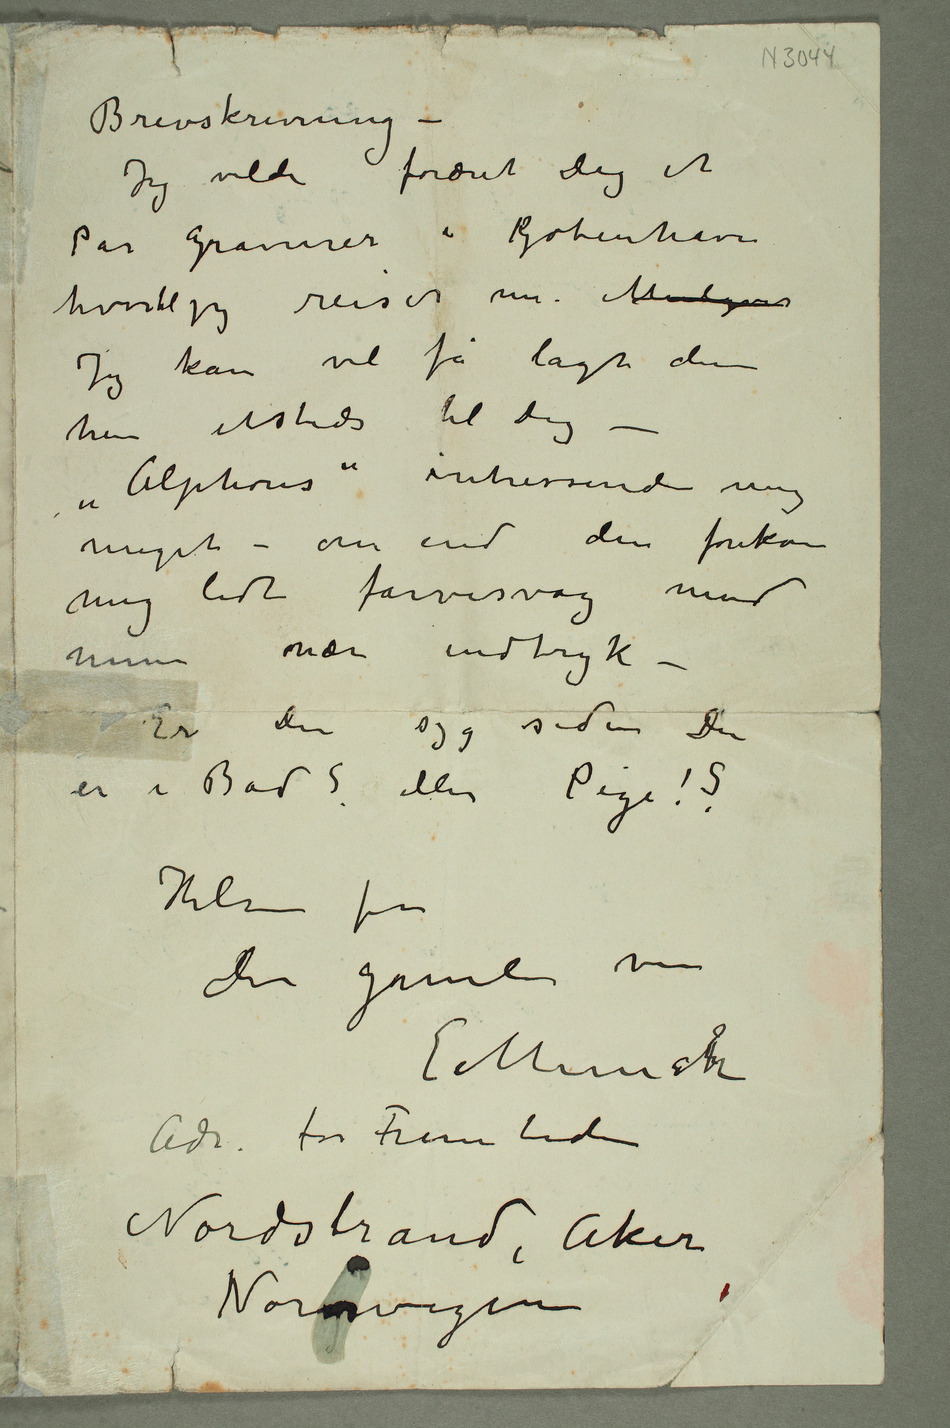 N3044
Brevskrivning –
Jeg vilde foræret Dig et
Par Gravurer i Kjøbenhavn
hvortil jeg reiser nu.
Jeg kan vel få lagt dem
hen etsteds til Dig —
„Alphons“ intresserede mig
meget – om end den forekom
mig lidt farvesvag mod
mine nær indtryk –
Er du syg siden Du
er i Bad? eller Pige!?
Hilsen fra
din gamle ven
E Munch
Adr. for Fremtiden
Nordstrand, Aker
Norwegen